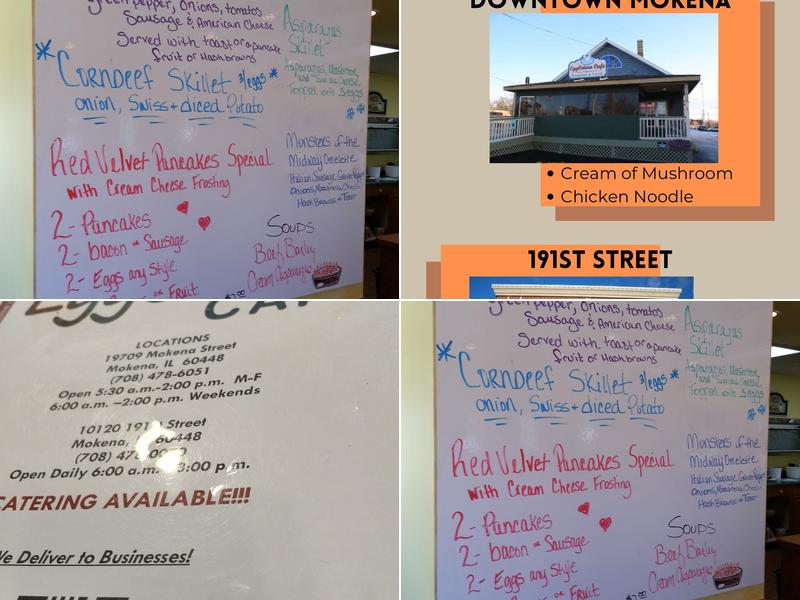 Green pepper, Onions, tomatos
Sausage & American Cheese
Served with toast or a pancake
fruit or Hashbrowns
Asparagus
Skillet
Asparagus,
and Swiss Cheese
Topped with 3 eggs
Corndeef Skillet 3/eggs
onion, Swiss + diced Potato
Red Velvet Pancakes Special
with Cream Cheese Frosting
2- Pancakes
2- bacon or Sausage
2- Eggs any Style
or Fruit
Monsters of the
Midway Omelette
Italian Sausage
Onions, Mozzarella
Hash Browns + Toast
Soups
Beef Barley
Cream Asparagus
DOWNTOWN MOKENA
Eggstatica Cafe
• Cream of Mushroom
• Chicken Noodle
191ST STREET
LOCATIONS
19709 Mokena Street
Mokena, IL 60448
(708) 478-6051
Open 5:30 a.m.-2:00 p.m. M-F
6:00 a.m. –2:00 p.m. Weekends
10120 191 Street
Mokena, 60448
(708)
Open Daily 6:00 a.m. 3:00 p.m.
CATERING AVAILABLE!!!
We Deliver to Businesses!
Green pepper, Onions, tomatos
Sausage & American Cheese
Served with toast or a pancake
fruit or Hashbrowns
Asparagus
Skillet
Asparagus,
and Swiss Cheese
Topped with 3 eggs
Corndeef Skillet 3/eggs
onion, Swiss + diced Potato
Red Velvet Pancakes Special
with Cream Cheese Frosting
2- Pancakes
2- bacon or Sausage
2- Eggs any Style
or Fruit
Monsters of the
Midway Omelette
Italian Sausage
Onions, Mozzarella
Hash Browns + Toast
Soups
Beef Barley
Cream Asparagus